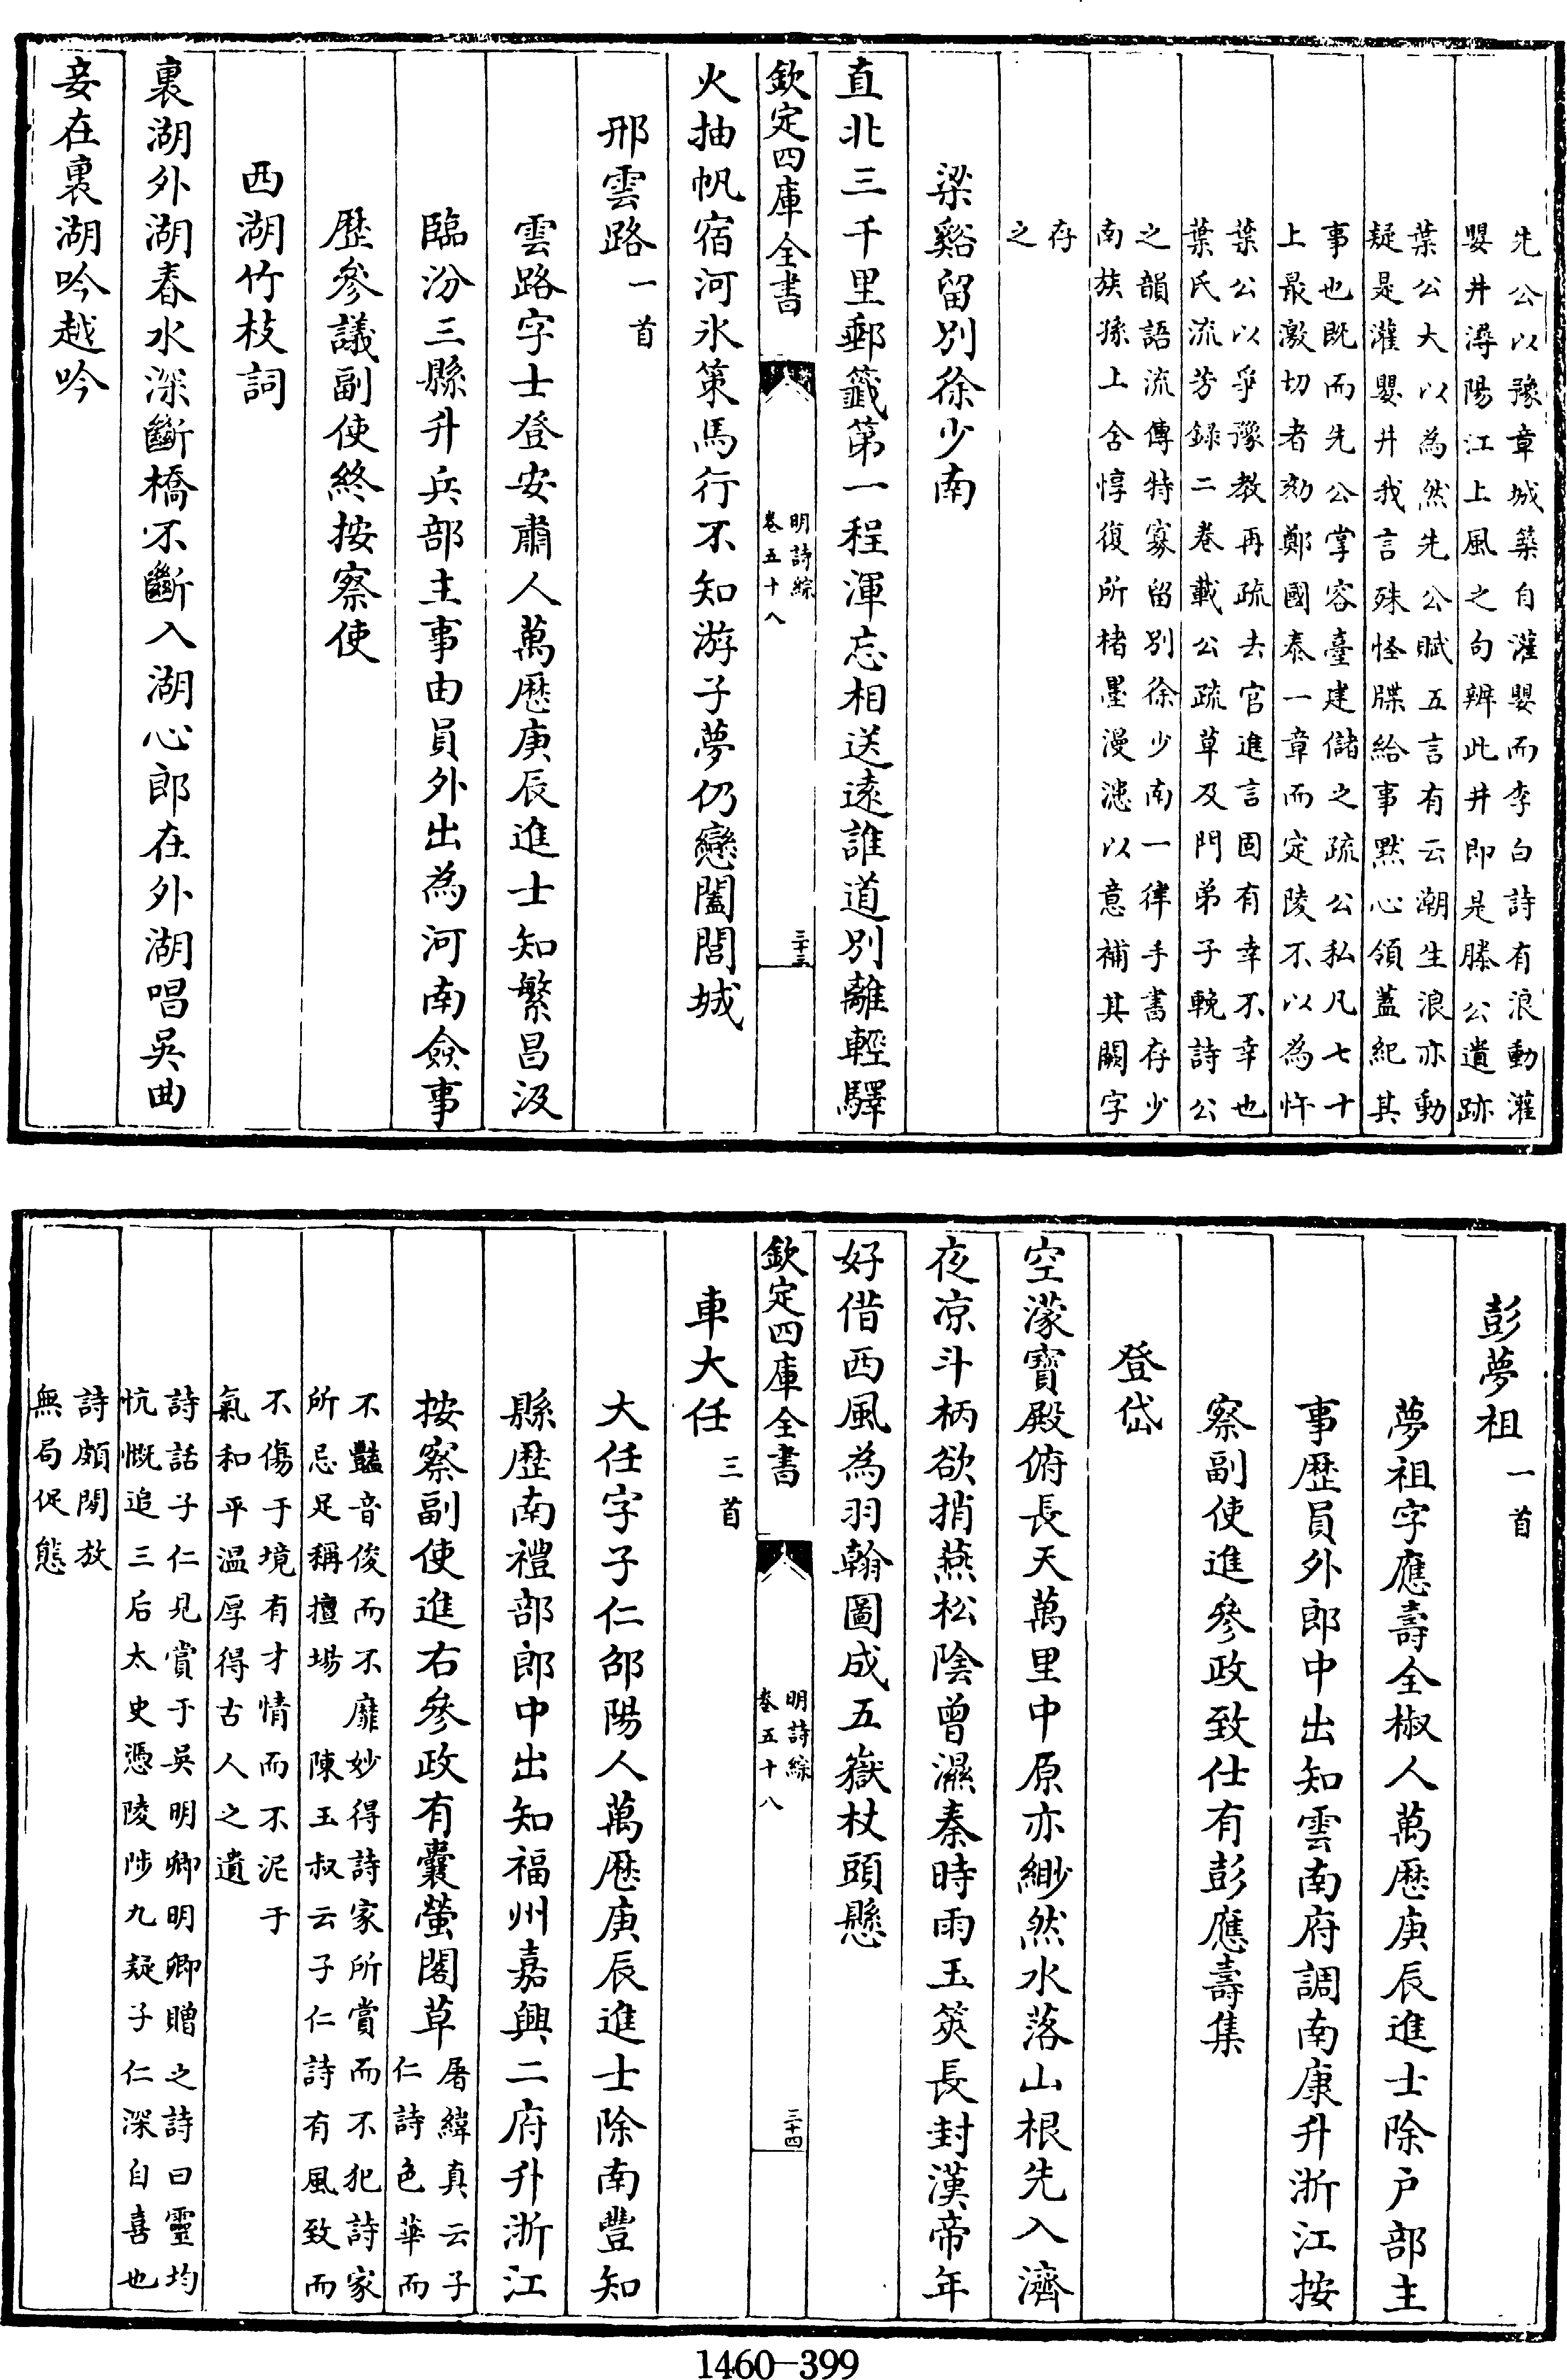 先公以豫章城築自灌嬰而李白詩有浪動灌
嬰井潯陽江上風之句辨此井即是滕公遺跡
葉公大以為然先公賦五言有云潮生浪亦動
疑是灌嬰井我言殊怪牒給事黙心領蓋紀其
事也既而先公掌容臺建儲之疏公私凡七十
上最激切者劾鄭國泰一章而定陵不以為忤
葉公以爭豫教再疏去官進言固有幸不幸也
葉氏流芳録二卷載公疏草及門弟子輓詩公
之韻語流傳特寡留別徐少南一律手書存少
南族孫上舍惇復所楮墨漫漶以意補其闕字
存
之
梁谿留別徐少南
直北三千里郵籖第一程渾忘相送遠誰道別離輕驛
欽定四庫全書
明詩綜
卷五十八
三十三
火抽帆宿河氷策馬行不知游子夢仍戀闔閭城
邢雲路一首
雲路字士登安肅人萬厯庚辰進士知繁昌汲
臨汾三縣升兵部主事由員外出為河南僉事
歴參議副使終按察使
西湖竹枝詞
裏湖外湖春水深斷橋不斷入湖心郎在外湖唱吳曲
妾在裏湖吟越吟
彭夢祖一首
夢祖字應壽全椒人萬厯庚辰進士除户部主
事歴員外郎中出知雲南府調南康升浙江按
察副使進參政致仕有彭應壽集
登岱
空濛寳殿俯長天萬里中原亦緲然水落山根先入濟
夜凉斗柄欲捎燕松陰曾濕秦時雨玉筴長封漢帝年
好借西風為羽翰圖成五嶽杖頭懸
欽定四庫全書
明詩綜
卷五十八
三十四
車大任三首
大任字子仁邵陽人萬厯庚辰進士除南豐知
縣歴南禮部郎中出知福州嘉興二府升浙江
按察副使進右參政有囊螢閣草
屠緯真云子
仁詩色華而
不豔音俊而不靡妙得詩家所賞而不犯詩家
所忌足稱擅場 陳玉叔云子仁詩有風致而
不傷于境有才情而不泥于
氣和平温厚得古人之遺
詩話子仁見賞于吳明卿明卿贈之詩曰靈均
忼慨追三后太史憑陵陟九疑子仁深自喜也
詩頗閒放
無局促態
1460-399